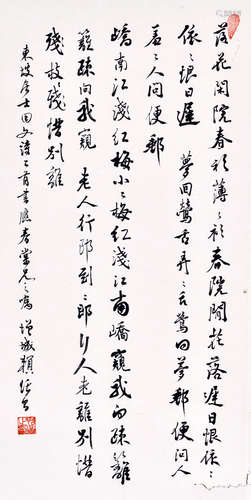 落花閒院春衫薄〻衫春院閒花落遲日恨依〻
依〻恨日遲 夢回鶯舌弄〻舌鶯回夢郵便問人
羞〻人問便郵
嶠南江淺紅梅小〻梅紅淺江南嶠窺我向疎籬
籬疎向我窺 老人行即到〻即行人老離別惜
殘枝〻殘惜別離
東坡居士回文詩二首書應春棠兄之囑 增城賴